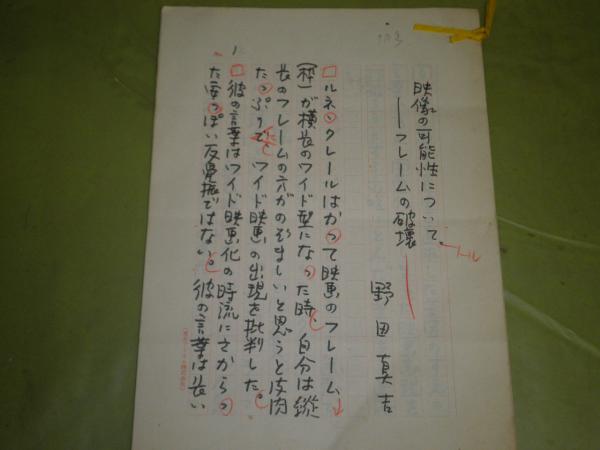 映像の可能性について
——フレームの破壊——
野田真吉
ルネ・クレールはかつて映画のフレーム
(枠)が横長のワイド型になった時、自分は縦
長のフレームの方がのぞましいと思うと皮肉
たっぷりに、ワイド映画の出現を批判した。
彼の言葉はワイド映画化の時流にさからっ
た安っぽい反骨振ではない。彼の言葉は長い